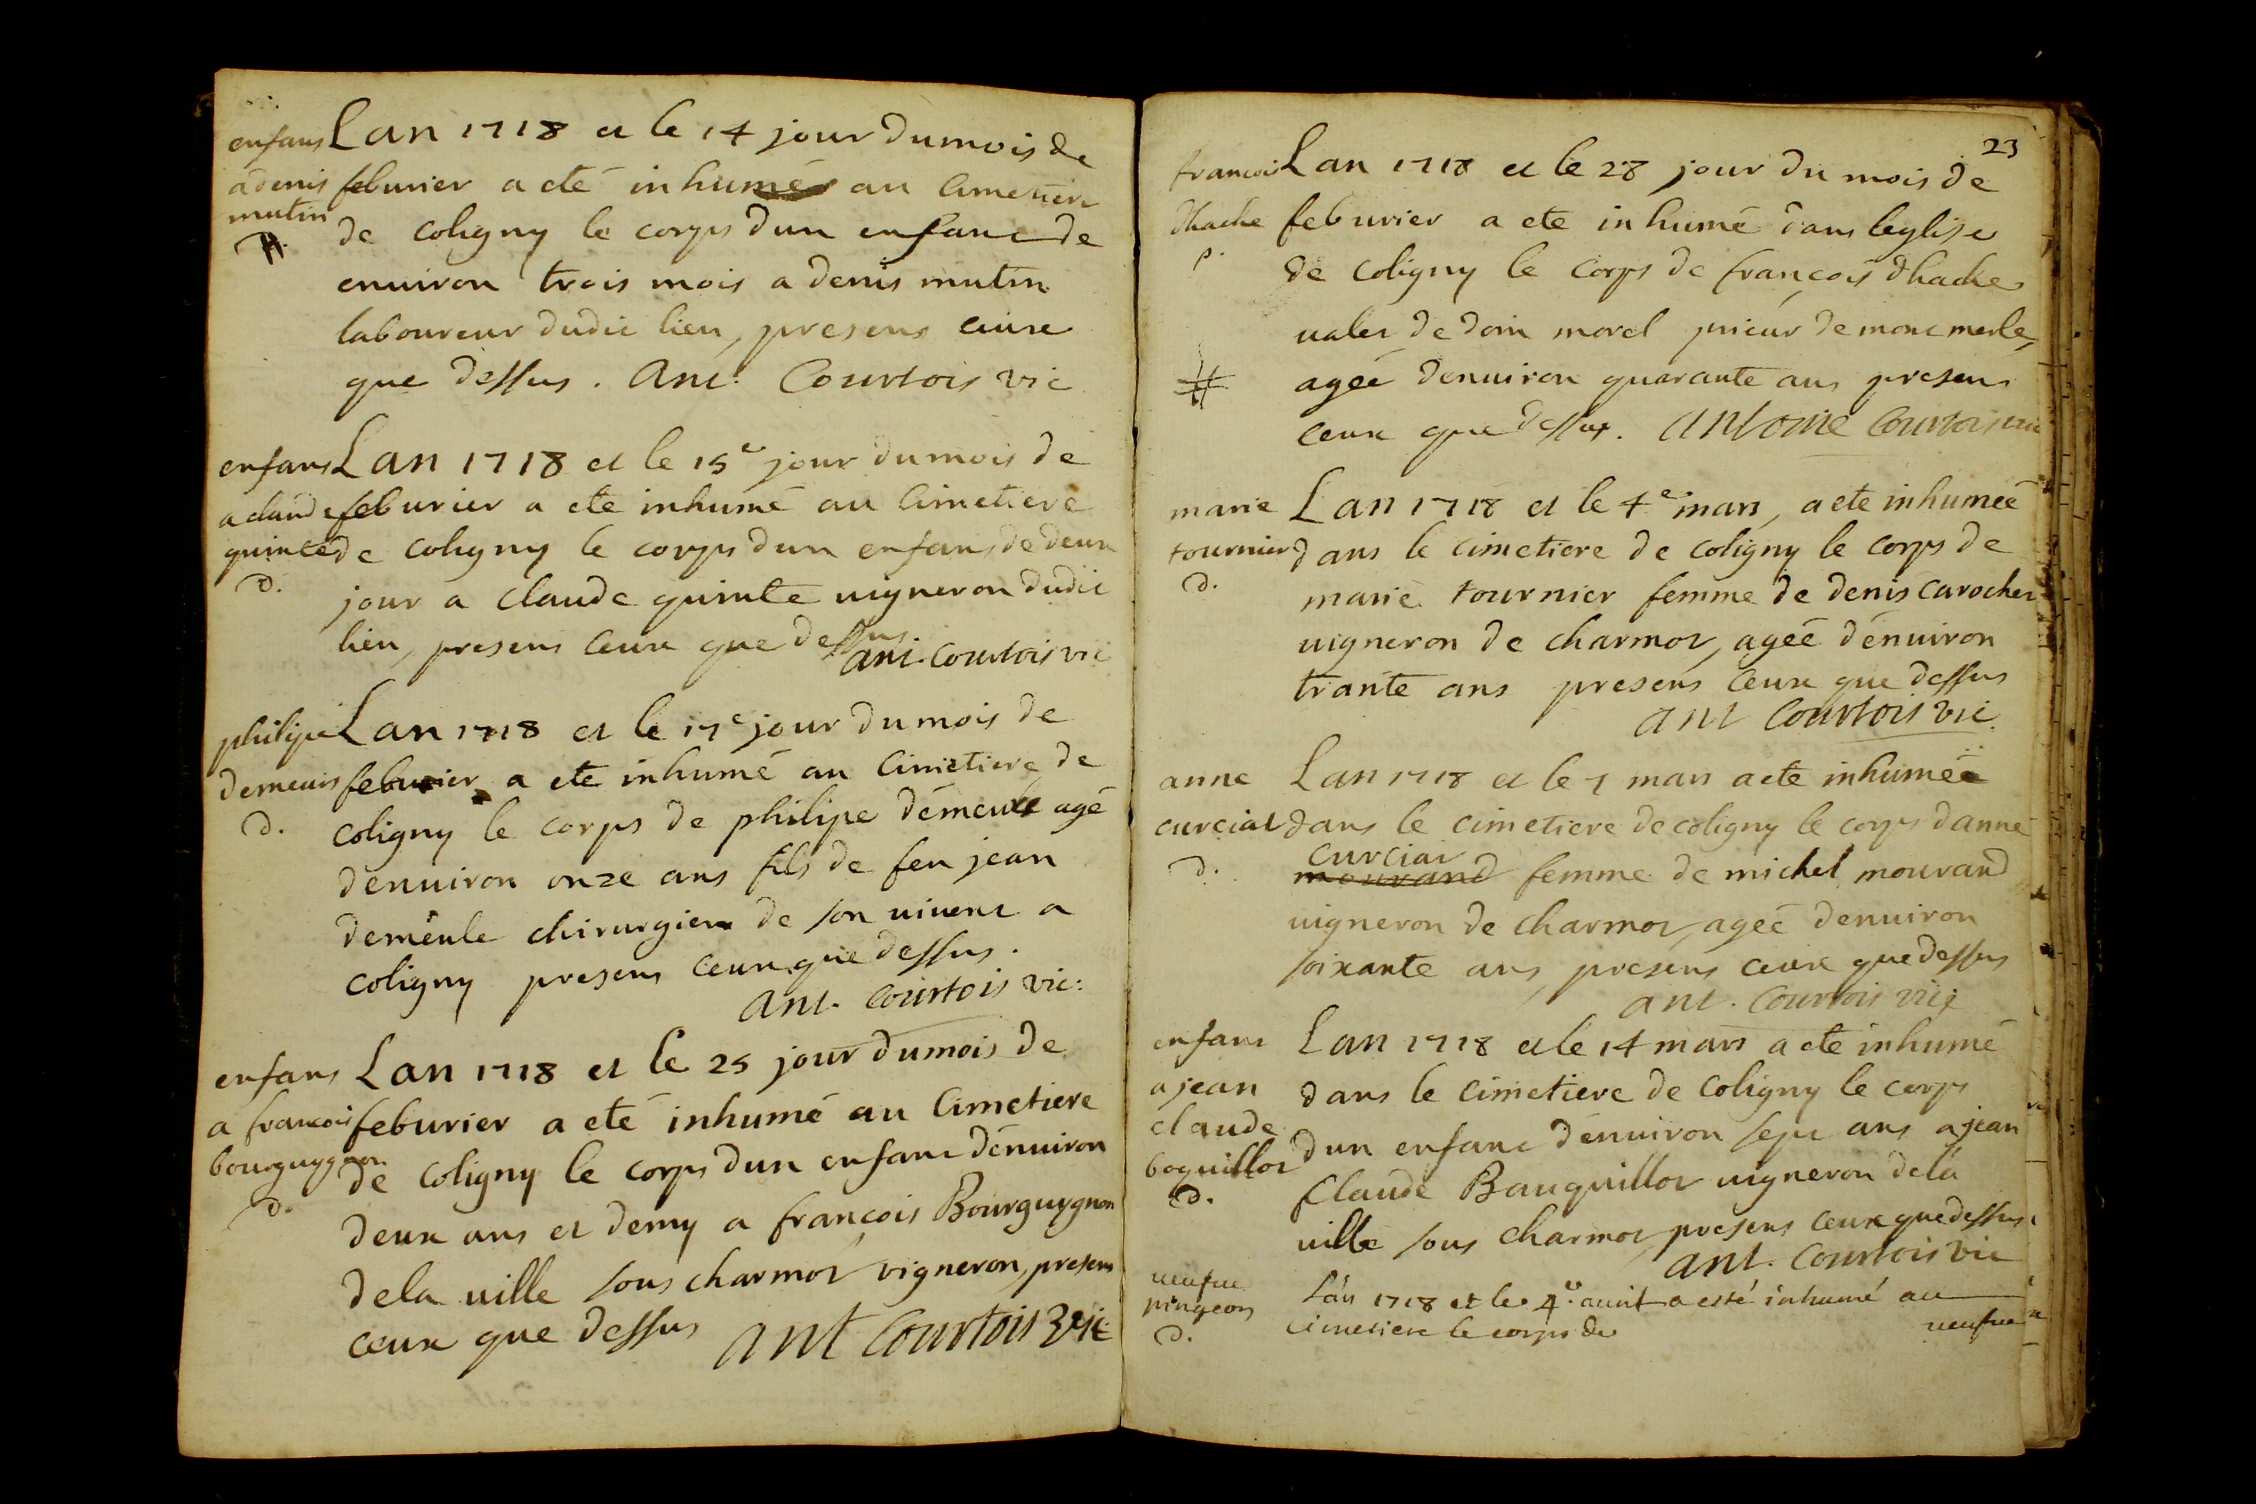 enfans Lan 1718 et le 14 jour du mois de
a denis feburier a eté inhumé au Cimetiere
mutin de coligny le corps dun enfant de
enuiron trois mois a denis mutin
laboureur dudit lieu, presens ceux
que dessus. Ant. Courtois vic
enfans Lan 1718 et le 15e jour du mois de
a claude feburier a eté inhumé au Cimetiere
quinte de coligny le corps dun enfans de deux
d. jour a claude quinte uigneron dudit
lieu, presens ceux que dessus
ant. courtois vic
philipe Lan 1718 et le 17e jour du mois de
demeuis feburier a eté inhumé au Cimetiere de
d. coligny le corps de philipe démeule agé
denuiron onze ans fils de feu jean
demeule chirurgien de son uiuent a
coligny presens ceux que dessus.
ant. courtois vic:
enfans Lan 1718 et le 25 jour du mois de
a francois feburier a eté inhumé au Cimetiere
bourguygnon de coligny le corps dun enfant dénuiron
d. deux ans et demy a françois Bourguygnon
de la uille sous charmot vigneron, presens
ceux que dessus ant courtois vic
23
francois Lan 1718 et le 28 jour du mois de
dhache feburier a ete inhumé dans leglise
p. de coligny le corps de françois dhache
ualet de dom morel prieur de mont merle,
ageé denuiron quarante ans presens
ceux que dessus. antoine Courtois vic
marie Lan 1718 et le 4e mars, a ete inhumeé
tournier dans le cimetiere de coligny le corps de
d. marie tournier femme de denis carocher
uigneron de charmot, ageé dénuiron
trante ans presens ceux que dessus
ant courtois vic.
anne Lan 1718 et le 7 mars a eté inhumée
curciat dans le cimetiere de coligny le corps danne
curciat
d. mourand femme de michel mourand
uigneron de charmot, ageé denuiron
soixante ans, presens ceux que dessus
ant. courtois vic
enfant Lan 1718 et le 14 mars a eté inhumé
a jean dans le cimetiere de coligny le corps
claude dun enfant dénuiron sept ans a jean
boquillot claude Bauquillot uigneron de la
d. uille sous charmot, presens ceux que dessus
ant. courtois vic
ueufue Lán 1718 et le 4e. auril a esté inhumé au
pingeon cimetiere le corps de ueufue
d.